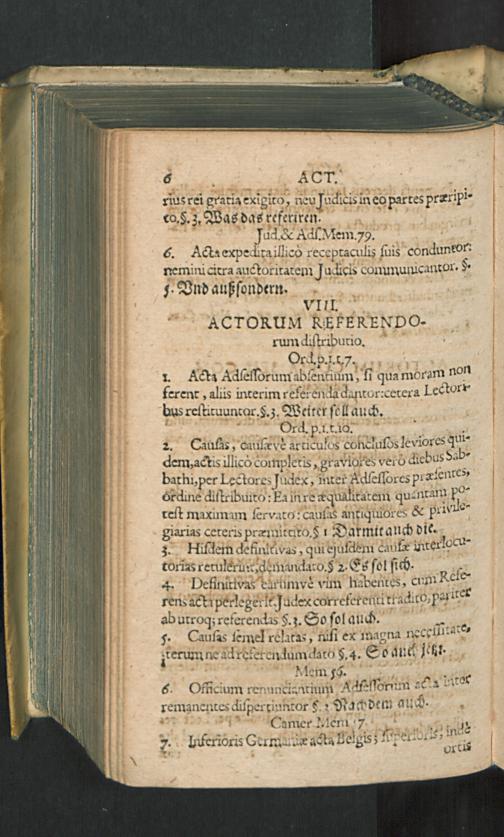 6 ACT.
rius rei gratia exigito, neu Judicis in eo partes præripi-
to.§.3. Was das referiren.
Jud.& Ads.Mem.79.
6. Acta expedita illicò receptaculis suis conduntor:
nemini citra auctoritatem Judicis communicantor. §.
5. Vnd außsondern.
VIII.
ACTORUM REFERENDO-
rum distributio.
Ord.p.1.t.7.
1. Acta Adsessorum absentium, si qua moram non
ferent, aliis interim referenda dantor: cetera Lectori-
bus restituuntor.§.3. Weiter soll auch.
Ord.p.1.t.10.
2. Causas, causævè articulos conclusos leviores qui-
dem, actis illicò completis, graviores verò diebus Sab-
bathi, per Lectores Judex, inter Adsessores præsentes,
ordine distribuito: Ea in re æqualitatem quantam po-
test maximam servato: causas antiquiores & privile-
giarias ceteris præmittito.§ 1 Darmit auch die.
3. Hisdem definitivas, qui ejusdem causæ interlocu-
torias retulerint, demandato.§ 2. Es sol sich.
4. Definitivas earumvè vim habentes, cum Refe-
rens acta perlegerit, Judex correferenti tradito, pariter
ab utroq; referendas §.3. So sol auch.
5. Causas semel relatas, nisi ex magna necessitate,
iterum ne ad referendum dato §.4. So auch jetzt.
Mem 56.
6. Officium renunciantium Adsessorum acta inter
remanentes dispertiuntor §. 2 Nachdem auch.
Camer Mem 7
7. Inferioris Germaniæ acta Belgis; superioris, inde
ortis